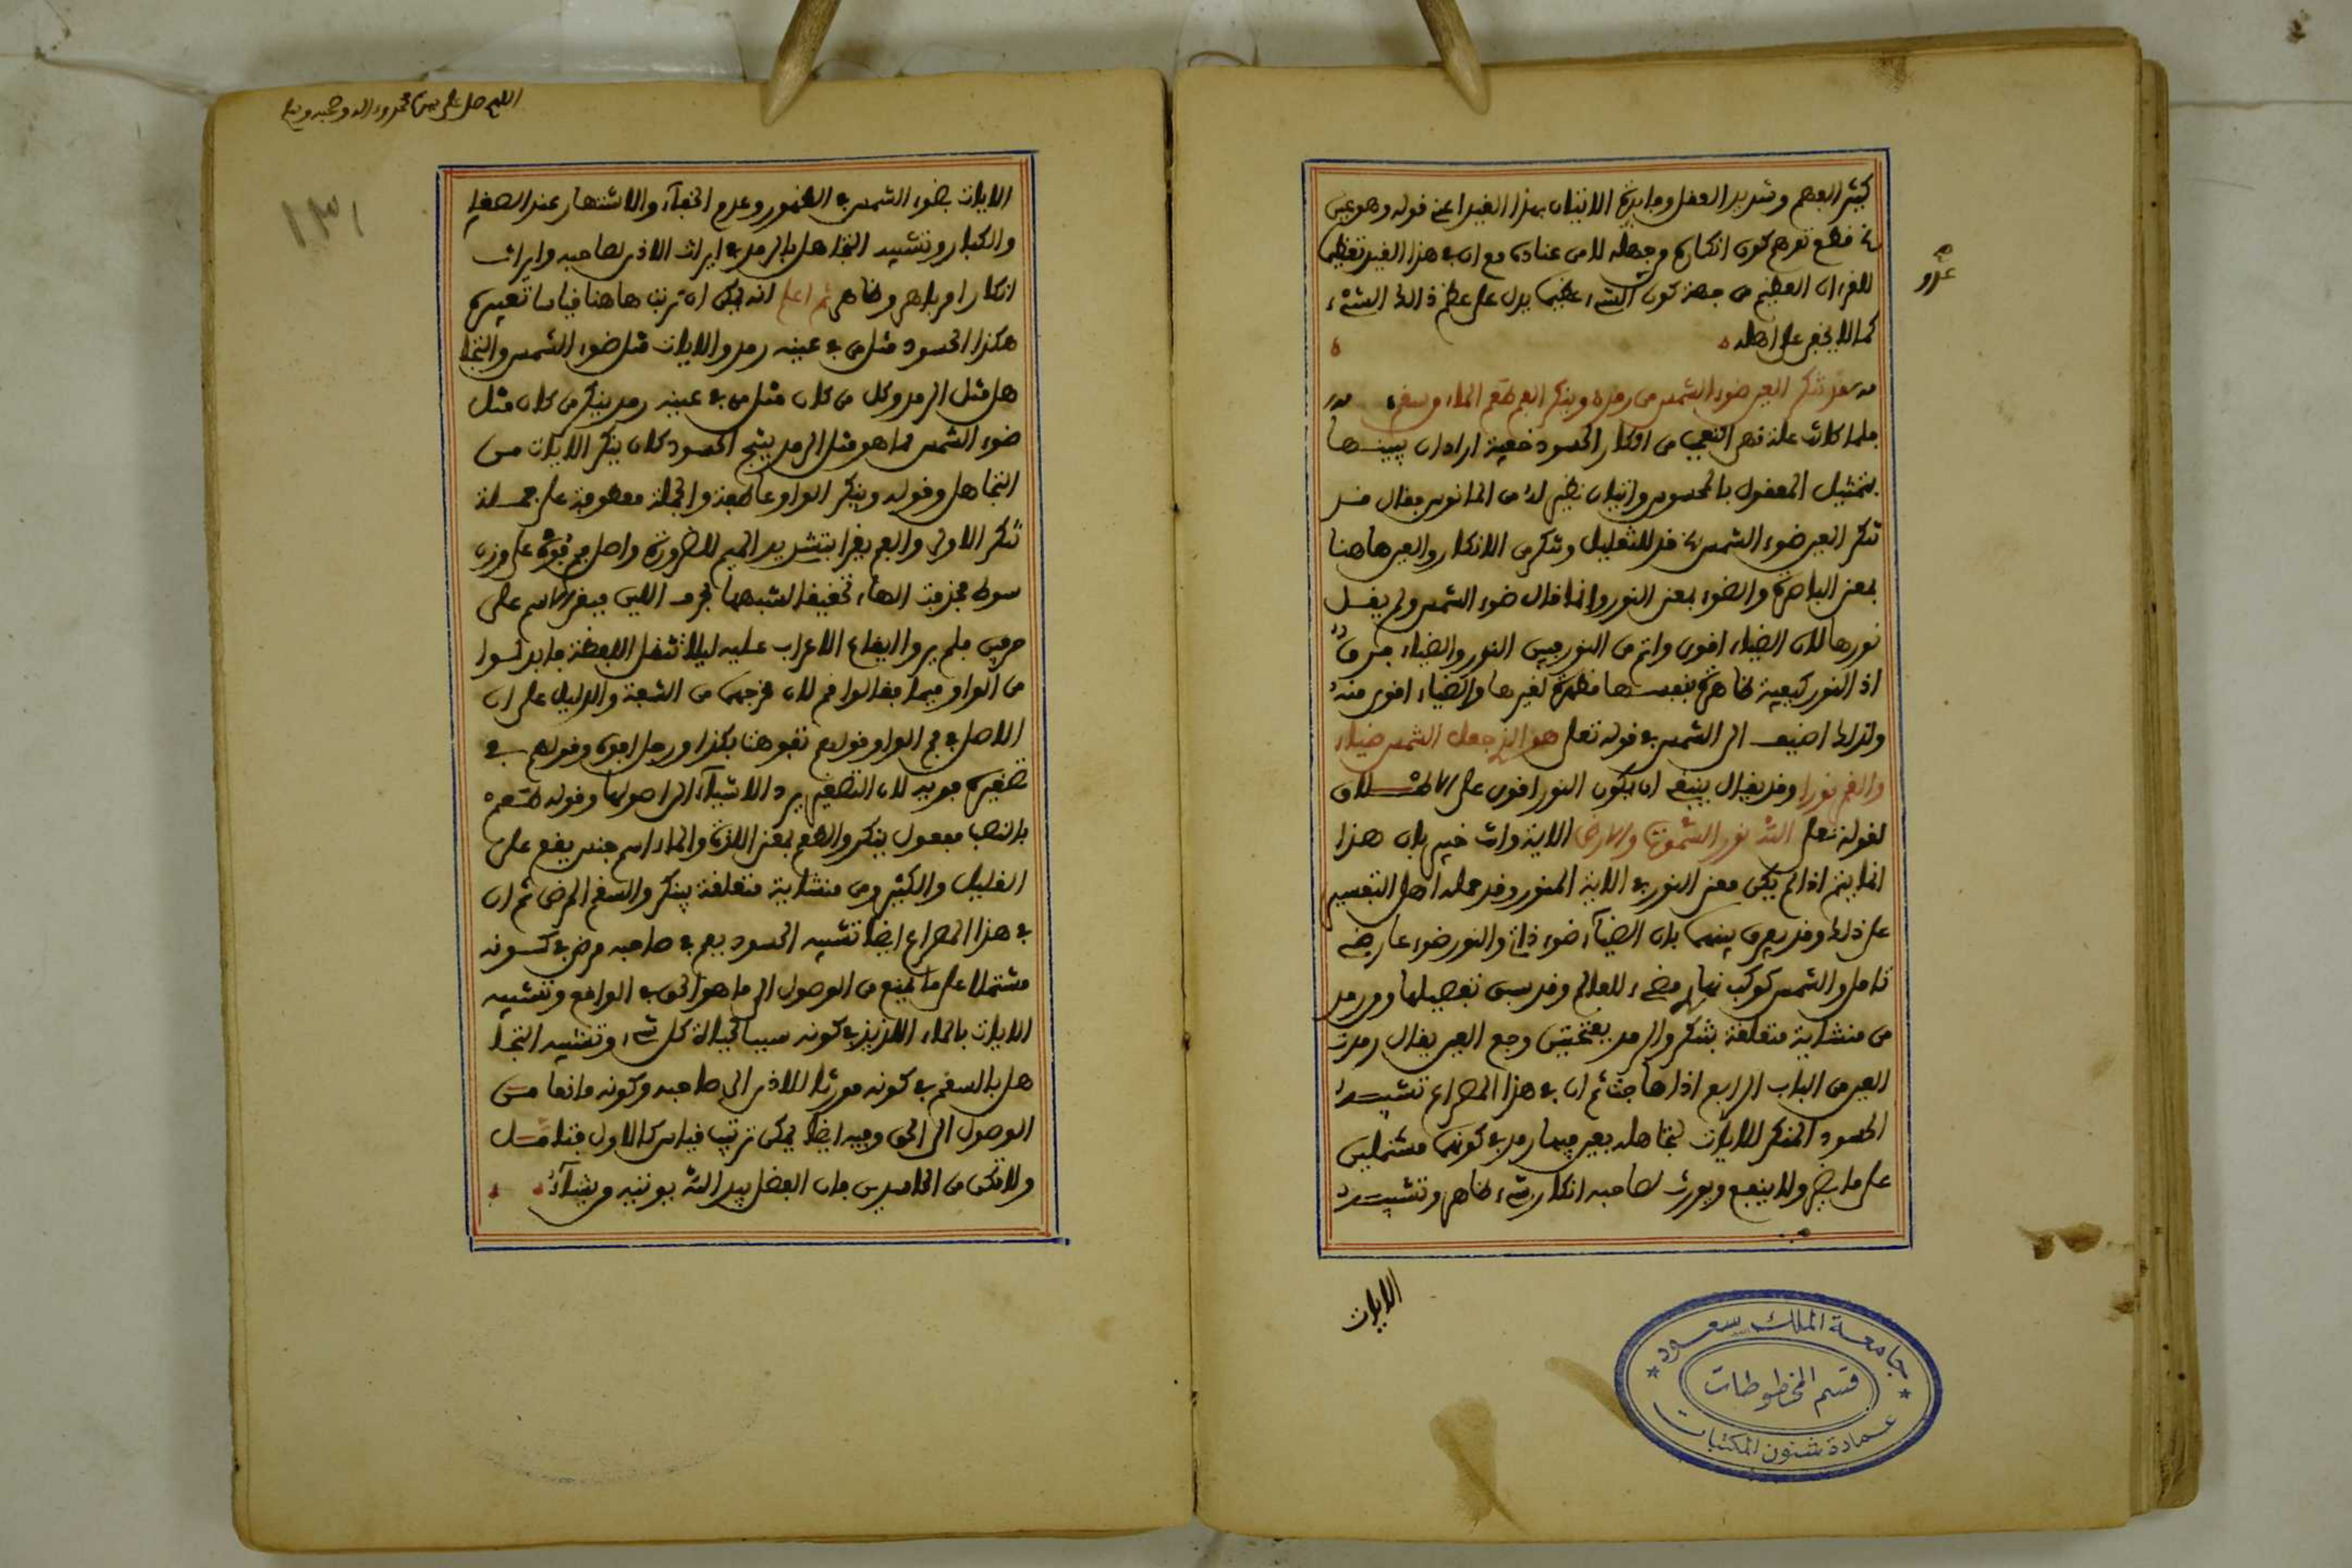 كثير الفهم وشديد العقل وفايدة الاتيان بهذا القيد اعني قوله وهو عين
قطع توهم كون انكاره وجهله لا من عناده مع ان في هذا القيد تعظيما
للقرءان العظيم من جهة كون الشيء عظيما يدل على عظم ذالك الشيء
كما لا يخفى على اهله
عدو
قد تنكر العين ضوء الشمس من رمد وينكر الفم طعم الماء من سقم
فلما كانت علة نهي التعجب من انكار الحسود خفية اراد ان يبينها
بتمثيل المعقول بالمحسوس واتيان نظير له من المانوس فقال قد
تنكر العين ضوء الشمس قد للتقليل وتنكر من الانكار والعين هاهنا
بمعنى الباصرة والضوء بمعنى النور وانما قال ضوء الشمس ولم يقل
نورها لان الضياء اقوى واتم من النور فبين النور والضياء فرق
اذ النور كيفية ظاهرة بنفسها مظهرة لغيرها والضياء اقوى منه
ولذالك اضيف الى الشمس في قوله تعلى هو الذي جعل الشمس ضياء
والقمر نورا وقد يقال ينبغي ان يكون النور اقوى على الاطلاق
لقوله تعلى الله نور السموت والارض الاية وانت خبير بان هذا
انما يتم اذا لم يكن معنى النور في الاية المنور وقد حمله اهل التفسير
على ذالك وقد يفرق بينهما بان الضياء ضوء ذاتي والنور ضوء عارضي
تامل والشمس كوكب نهاري مضيء للعالم وقد سبق تفصيلها ومن رمد
من منشاية متعلقة بتنكر والرمد بفتحتين وجع العين يقال رمدت
العين من الباب الرابع اذا هاجت ثم ان في هذا المصراع تشبيه
الحسود المنكر للايات لتجاهله بعين فيها رمد في كونهما مشتملين
على ما يضر ولا ينفع ويورث لصاحبه انكار شيء ظاهر وتشبيه
الايات
جامعة الملك سعود
قسم المخطوطات
عمادة شئون المكتبات
اللهم صل على سيدنا محمد وءاله وصحبه وسلم
١٣١
الايات بضوء الشمس في الظهور وعدم الخفاء والاشتهار عند الصغار
والكبار وتشبيه التجاهل بالرمد في ايراث الاذى لصاحبه وايراث
انكار امر باهر وظاهر ثم اعلم انه يمكن ان ترتب هاهنا قياسا تعبيره
هكذا الحسود مثل من في عينه رمد والايات مثل ضوء الشمس والتجا
هل مثل الرمد وكل من كان مثل من في عينه رمد ينكر من كان مثل
ضوء الشمس لما هو مثل الرمد ينتج الحسود كان ينكر الايات من
التجاهل وقوله وينكر الواو عاطفة والجملة معطوفة على جملة
تنكر الاولى والفم يقرا بتشديد الميم للضرورة واصل فم فوه على وزن
سوط فحذفت الهاء تخفيفا لشبهها بحرف اللين فبقي الاسم على
حرفين فلم يروا ايقاع الاعراب عليه ليلا تثقل اللفظة فابدلوا
من الواو ميما فقالوا فم لان مخرجهما من الشفة والدليل على ان
الاصل في فم الواو قولهم تفوهنا بكذا ورجل افوه وقولهم في
تصغيره فويه لان التصغير يرد الاشياء الى اصولها وقوله طعم
بالنصب مفعول ينكر والطعم بمعنى اللذة والماء اسم جنس يقع على
القليل والكثير ومن منشاية متعلقة بينكر والسقم المرض ثم ان
في هذا المصراع ايضا تشبيه الحسود بفم في صاحبه مرض في كونه
مشتملا على ما يمنع من الوصول الى ما هو الحق في الواقع وتشبيه
الايات بالماء اللذيذ في كونه سببا لحياة كل شيء وتشبيه التجا
هل بالسقم في كونه مورثا للاذى الى صاحبه وكونه مانعا من
الوصول الى الحق وفيه ايضا يمكن ترتيب قياس كالاول فتامل
ولا تكن من الحاسدين فان الفضل بيد الله يوتيه من يشاء